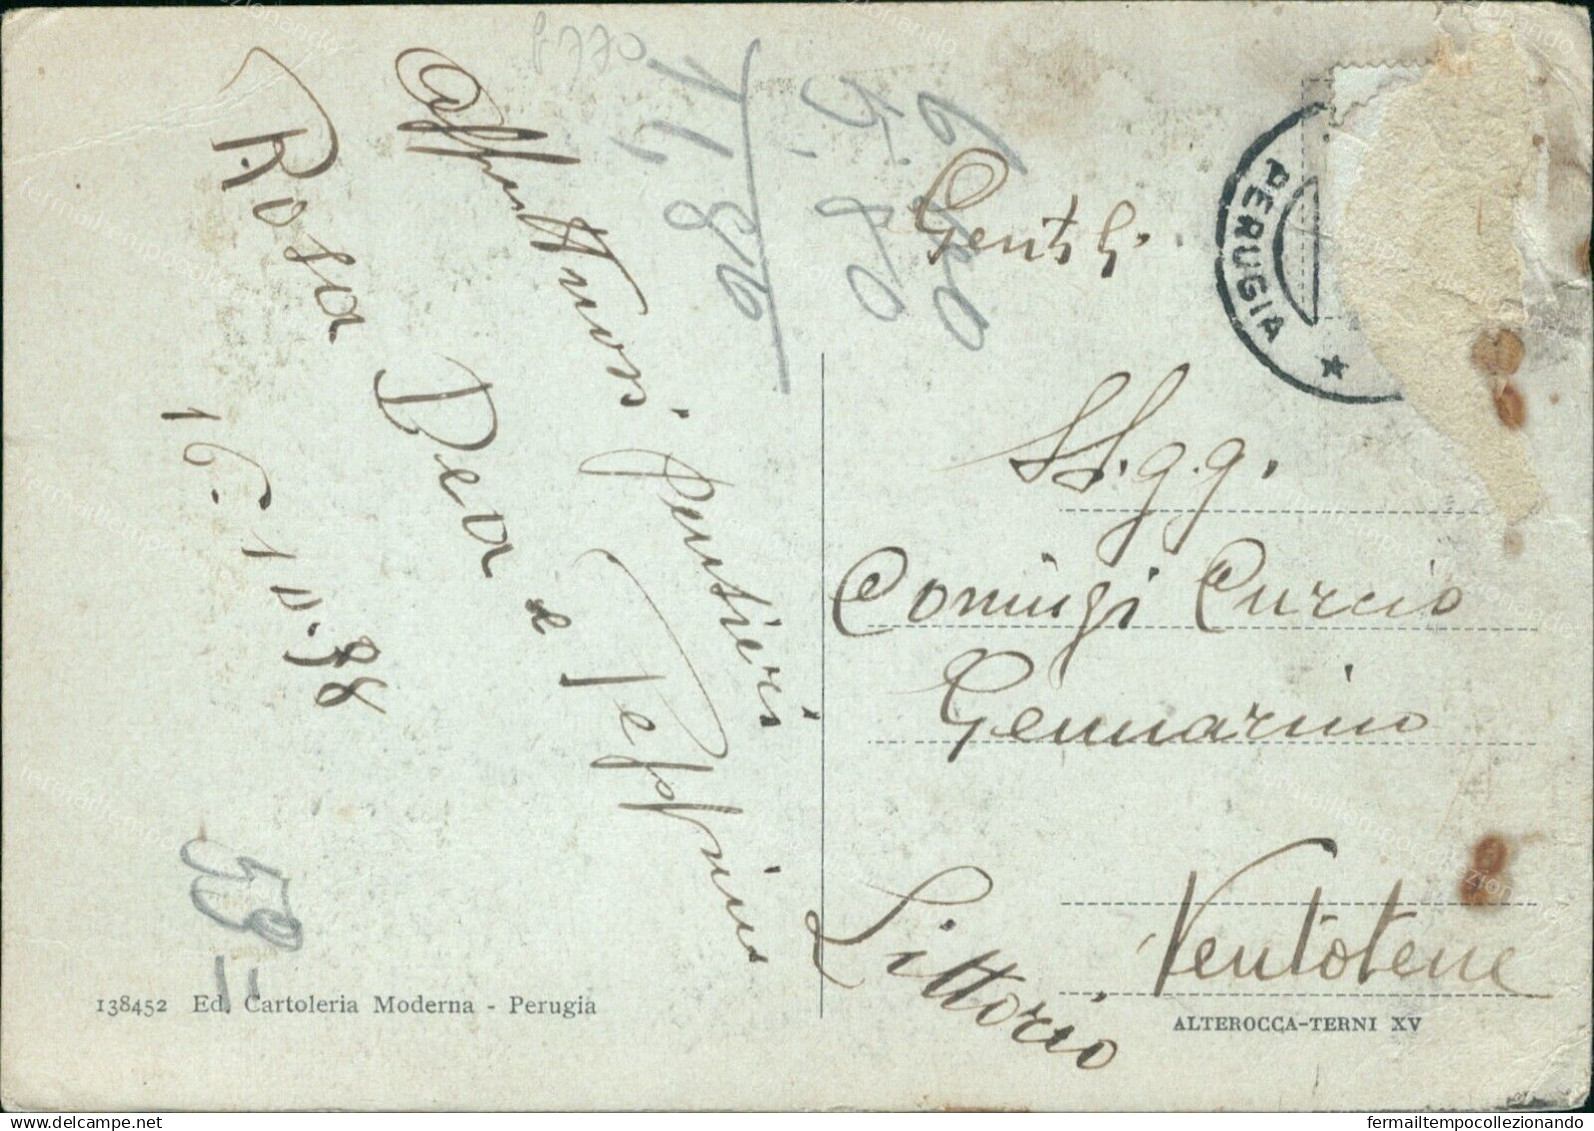 Affettuosi pensieri
Rosa Dea e Peppino
16.10.38
59
11
8770
6
5.80
1 L, 8
Gent.
PERUGIA
SS.gg.
Coniugi Curcio
Gennarino
Ventotene
Littorio
138452 Ed. Cartoleria Moderna - Perugia
ALTEROCCA-TERNI XV
fermailtempocollezionando